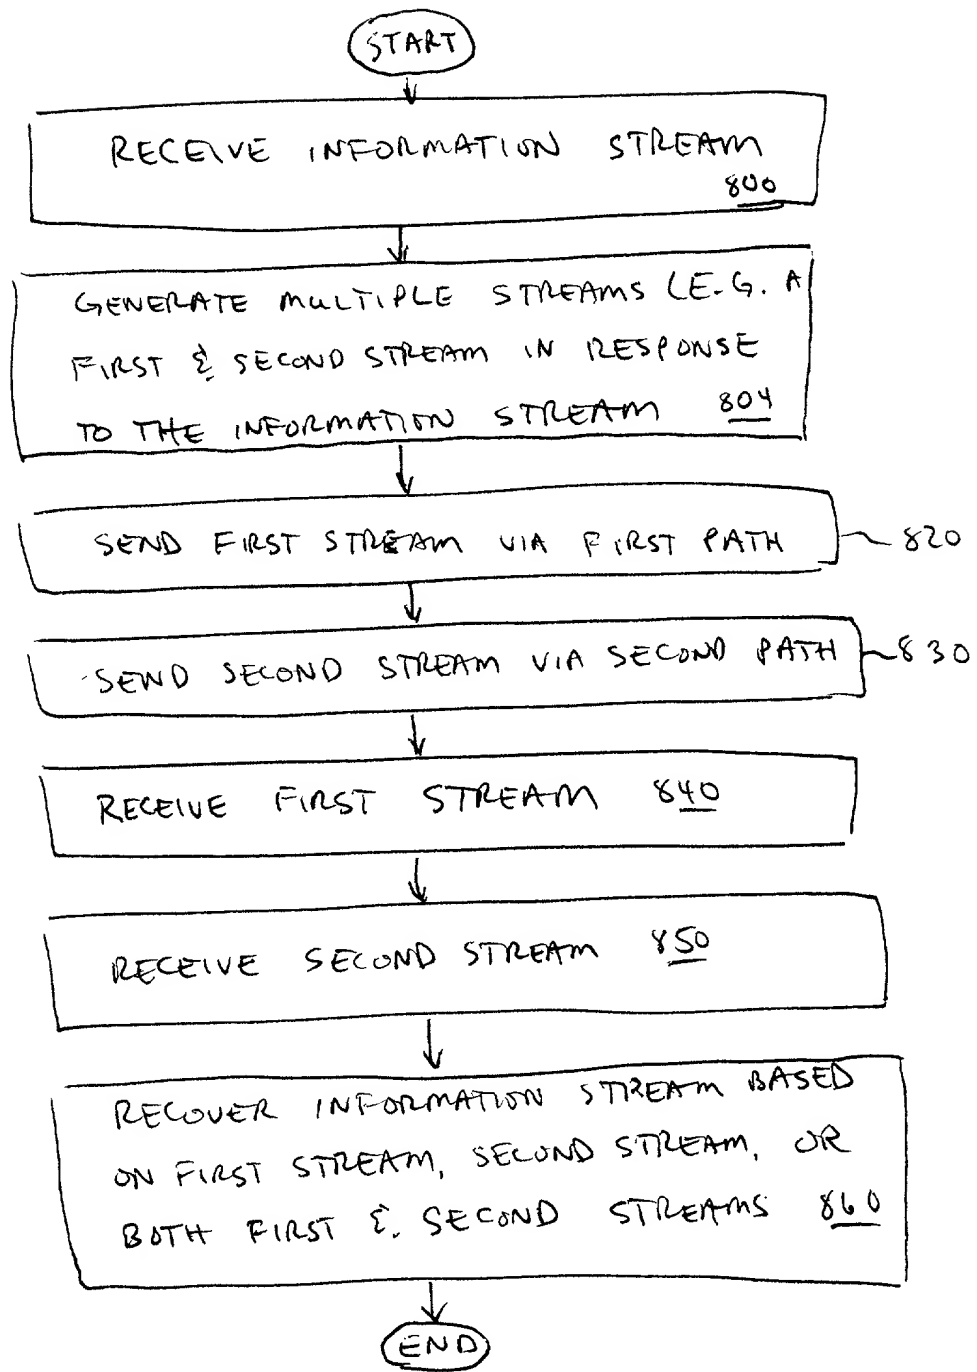 START
RECEIVE INFORMATION STREAM
800
GENERATE MULTIPLE STREAMS (E.G. A
FIRST & SECOND STREAM IN RESPONSE
TO THE INFORMATION STREAM 804
SEND FIRST STREAM VIA FIRST PATH 820
SEND SECOND STREAM VIA SECOND PATH 830
RECEIVE FIRST STREAM 840
RECEIVE SECOND STREAM 850
RECOVER INFORMATION STREAM BASED
ON FIRST STREAM, SECOND STREAM, OR
BOTH FIRST &. SECOND STREAMS 860
END